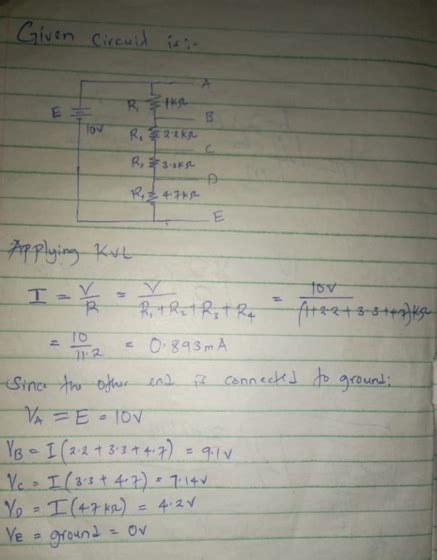 Given Circuit is:-
A
R₁ 1KΩ
E 10V
B
R₂ 2.2KΩ
C
R₃ 3.3KΩ
D
R₄ 4.7KΩ
E
Applying KVL
I = V/R = V/(R₁+R₂+R₃+R₄) = 10V/(1+2.2+3.3+4.7)KΩ
= 10/11.2 = 0.893mA
Since the other end is connected to ground:
V_A = E = 10V
V_B = I(2.2+3.3+4.7) = 9.1V
V_C = I(3.3+4.7) = 7.14V
V_D = I(4.7KΩ) = 4.2V
V_E = ground = 0V